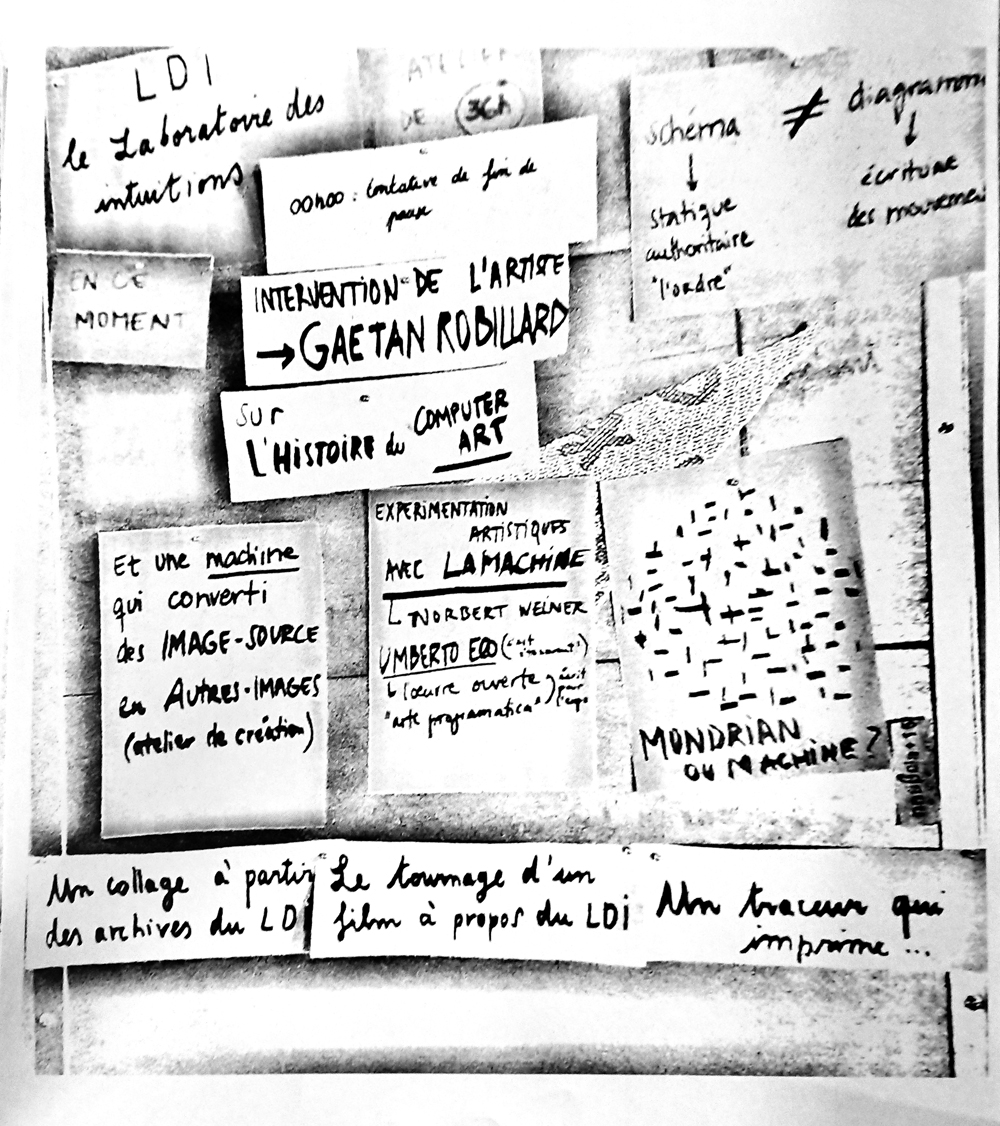 LDI
le Laboratoire des
intuitions
ATELIER
DE 36h
00h00 : tentative de fin de
pause
schéma ≠ diagramm
↓ ↓
statique
authoritaire
"l'ordre"
écriture
des mouvemen
EN CE
MOMENT
INTERVENTION DE L'ARTISTE
→ GAETAN ROBILLARD
SUR
L'HISTOIRE du COMPUTER
ART
Et une machine
qui converti
des IMAGE-SOURCE
en AUTRES-IMAGES
(atelier de création)
EXPERIMENTATION
ARTISTIQUES
AVEC LA MACHINE
NORBERT WEINER
UMBERTO ECO
l'œuvre ouverte
"arte programatica"
MONDRIAN
OU MACHINE ?
Un collage à partir
des archives du LD
Le tournage d'un
film à propos du LDi
Un traceur qui
imprime ...